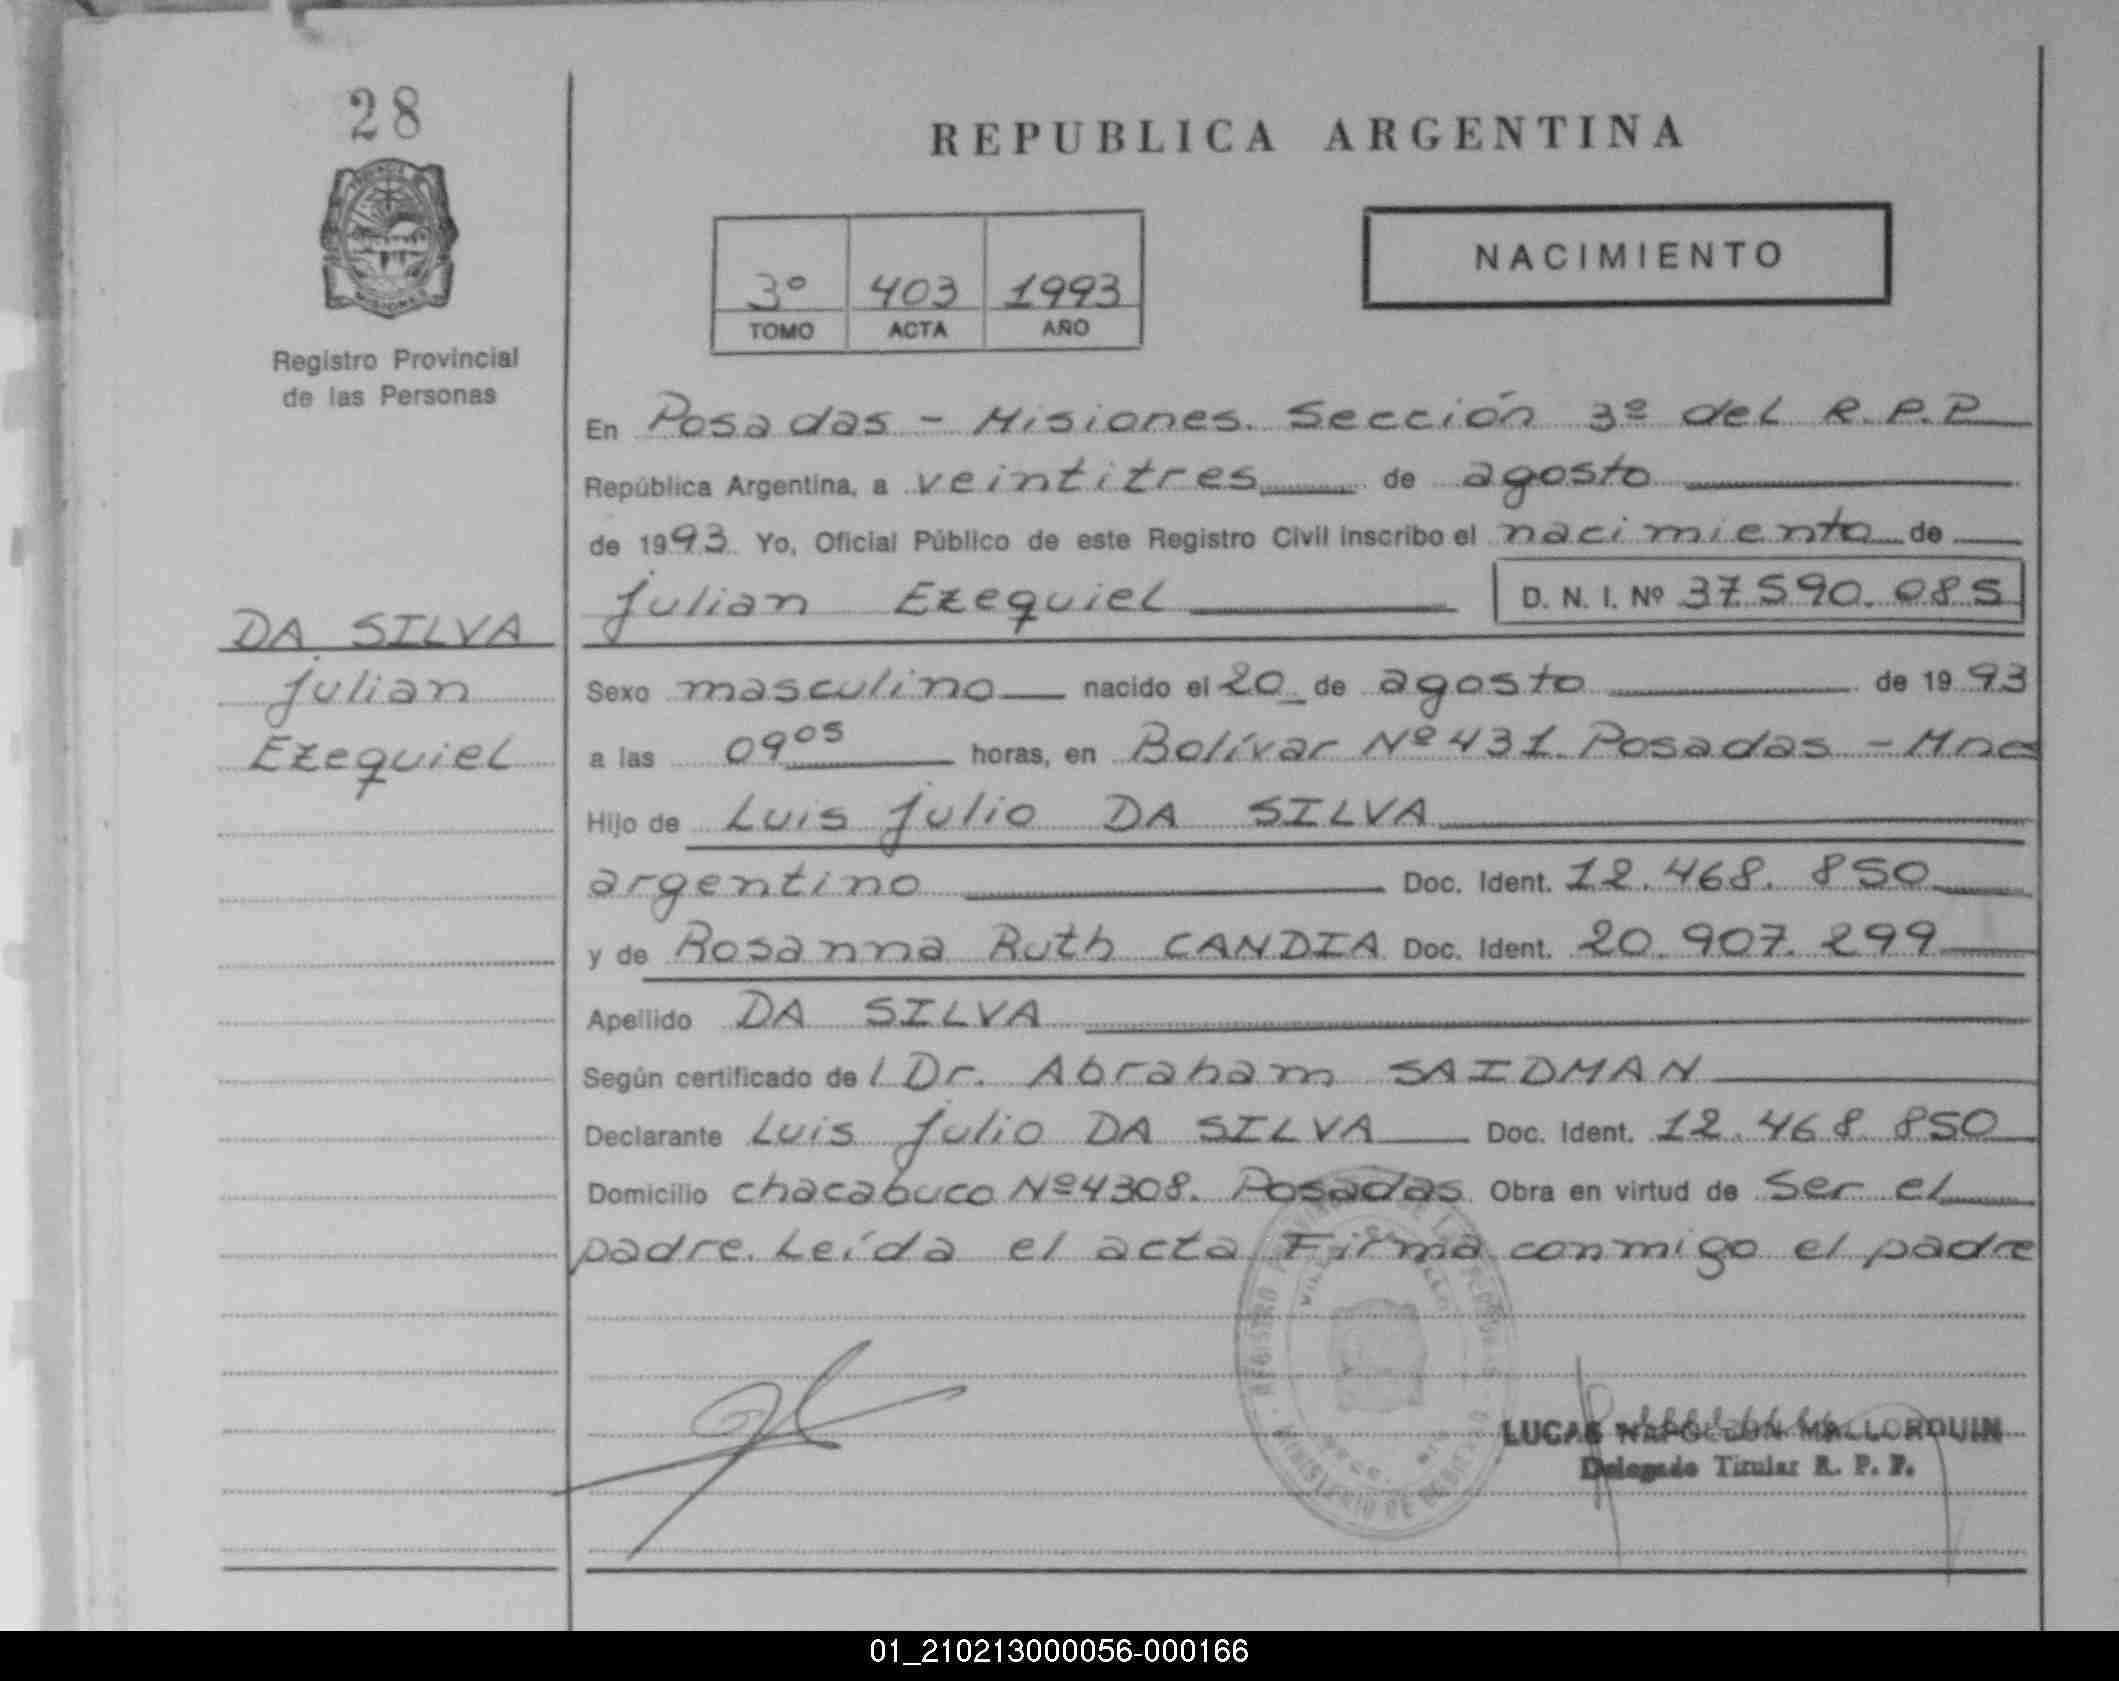 28
Registro Provincial
de las Personas
DA SILVA
Julian
Ezequiel
REPUBLICA ARGENTINA
NACIMIENTO
3º 403 1993
TOMO ACTA AÑO
En Posadas - Misiones. Sección 3º del R.P.P
República Argentina, a veintitres de agosto
de 1993 Yo, Oficial Público de este Registro Civil inscribo el nacimiento de
Julian Ezequiel D. N. I. Nº 37.590.085
Sexo masculino nacido el 20 de agosto de 1993
a las 09 05 horas, en Bolívar Nº 431 Posadas - Mnes
Hijo de Luis Julio DA SILVA
argentino Doc. Ident. 12.468.850
y de Rosanna Ruth CANDIA Doc. Ident. 20.907.299
Apellido DA SILVA
Según certificado de l Dr. Abraham SAIDMAN
Declarante Luis Julio DA SILVA Doc. Ident. 12.468.850
Domicilio chacabuco Nº 4308. Posadas Obra en virtud de Ser el
padre. Leída el acta Firma conmigo el padre
LUCAS NAPOLEON MALLORQUIN
Delegado Titular R. P. P.
01_210213000056-000166